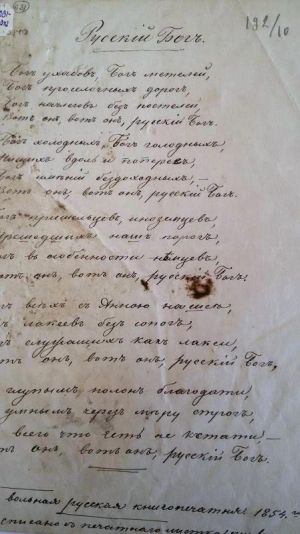 192/10
Русскiй Богъ.
Богъ ухабовъ, Богъ метелей,
Богъ проселочныхъ дорогъ,
Богъ ночлеговъ безъ постелей,
Вотъ онъ, вотъ онъ, русскiй Богъ.
Богъ холодныхъ, Богъ голодныхъ,
Нищихъ вдоль и поперекъ,
Богъ имѣнiй бездоходныхъ, —
Вотъ онъ, вотъ онъ, русскiй Богъ.
пришельцевъ, иноземцевъ,
перешедшихъ нашъ порогъ,
въ особенности нѣмцевъ,
вотъ онъ, вотъ онъ, русскiй Богъ;
всѣхъ съ Анною на шеѣ,
лакеевъ безъ сапогъ,
служащихъ какъ лакеи,
онъ, вотъ онъ русскiй Богъ,
глупымъ полонъ благодати,
умнымъ черезъ мѣру строгъ,
всего что есть не кстати —
онъ, вотъ онъ, русскiй Богъ.
вольная русская книгопечатня 1854
списано съ печатнаго листка